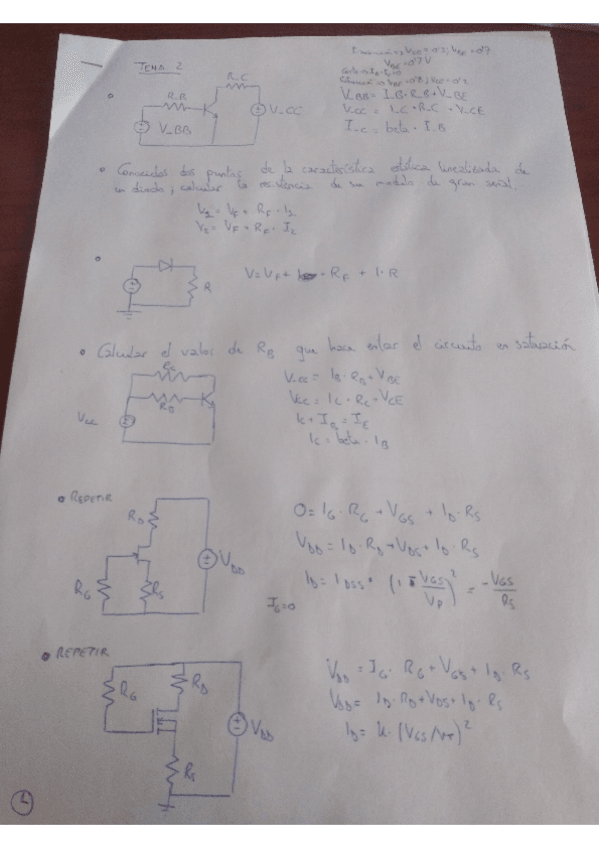 TEMA 2
R_C
R_B
V_CC
V_BB
V_BE = 0'7V
V_BB = I_B · R_B + V_BE
V_CC = I_C · R_C + V_CE
I_C = beta · I_B
Conocidos dos puntos de la característica estática linealizada de
un diodo, calcular la resistencia de su modelo de gran señal.
V2 = VF + RF · I2
VF + RF · I2
R
V = VF + I · RF + I · R
Calcular el valor de RB que hace estar el circuito en saturación
RC
RB
VCC
VCC = IB · RB + VBE
VCC = IC · RC + VCE
IC + IB = IE
IC = beta · IB
REPETIR
RD
RG
RS
VDD
0 = IG · RG + VGS + ID · RS
VDD = ID · RD + VDS + ID · RS
ID = IDSS · (1 - VGS/VP)² = -VGS/RS
IG=0
REPETIR
RG
RD
VDD
RS
VDD = IG · RG + VGS + ID · RS
VDD = ID · RD + VDS + ID · RS
ID = k · (VGS/VT)²